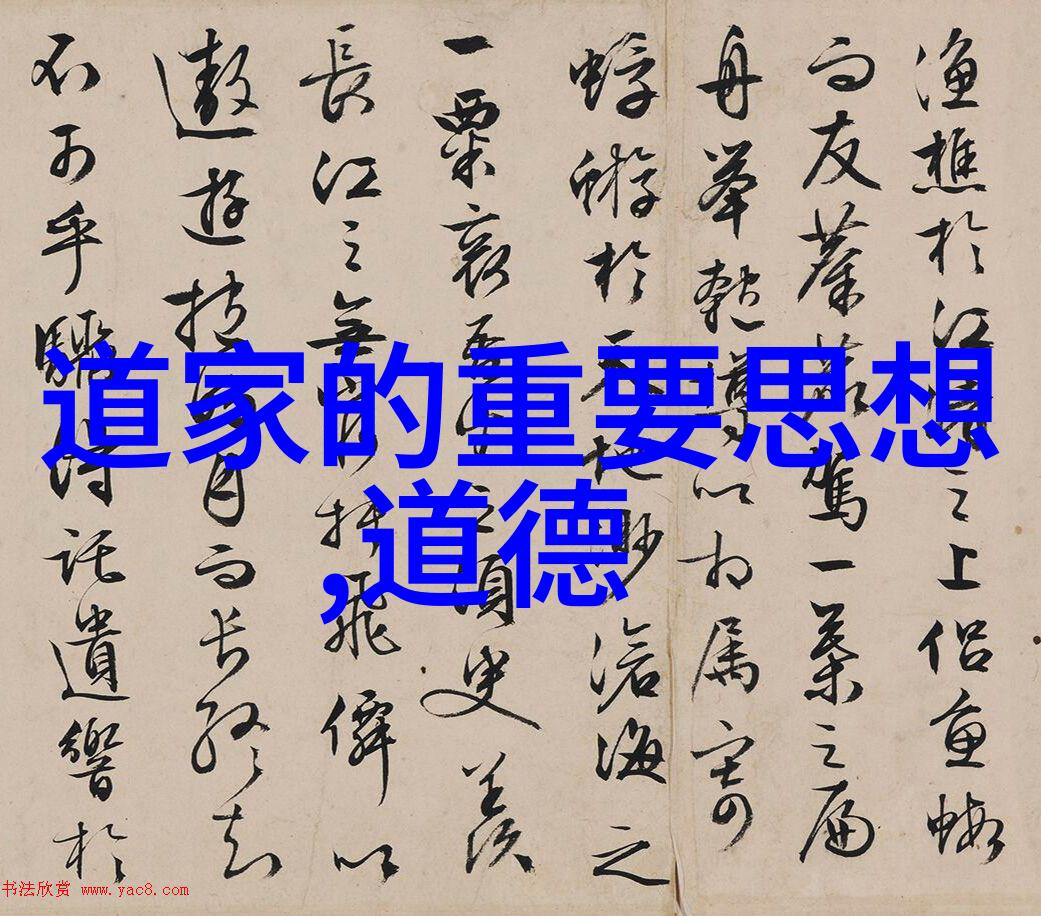 道家的重要思想
,道德
漁樵於江渚之上侣魚蝦
而友麋鹿駕一葉之扁
舟舉匏樽以相属寄
蜉蝣於天地渺滄海之
一粟哀吾生之須臾羨
長江之無窮挾飛僊以
遨遊抱明月而長終知
不可乎驟得託遺響於
书法欣赏 www.yac8.com